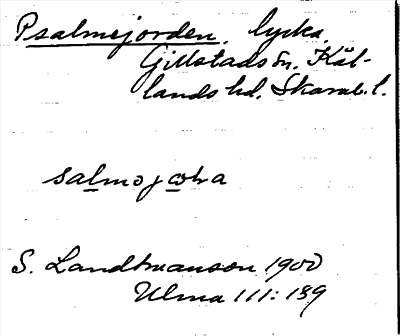 Psalmejorden. lycka.
Gillstads sn. Kål-
lands hd. Skarab. l.
salmojoɷ̨a
S. Landtmanson 1900
Ulma 111:189